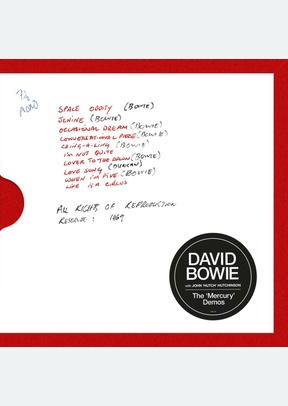 7½
MONO
SPACE ODDITY (BOWIE)
JENINE (BOWIE)
OCCASIONAL DREAM (BOWIE)
CONVERSATIONAL PIECE (BOWIE)
CHING-A-LING (BOWIE)
I'M NOT QUITE
LOVER TO THE DAWN (BOWIE)
LOVE SONG (DUNCAN)
WHEN I'M FIVE (BOWIE)
LIFE IS A CIRCUS
ALL RIGHTS OF REPRODUCTION
RESERVE: 1969
DAVID
BOWIE
with JOHN 'HUTCH' HUTCHINSON
The 'Mercury'
Demos